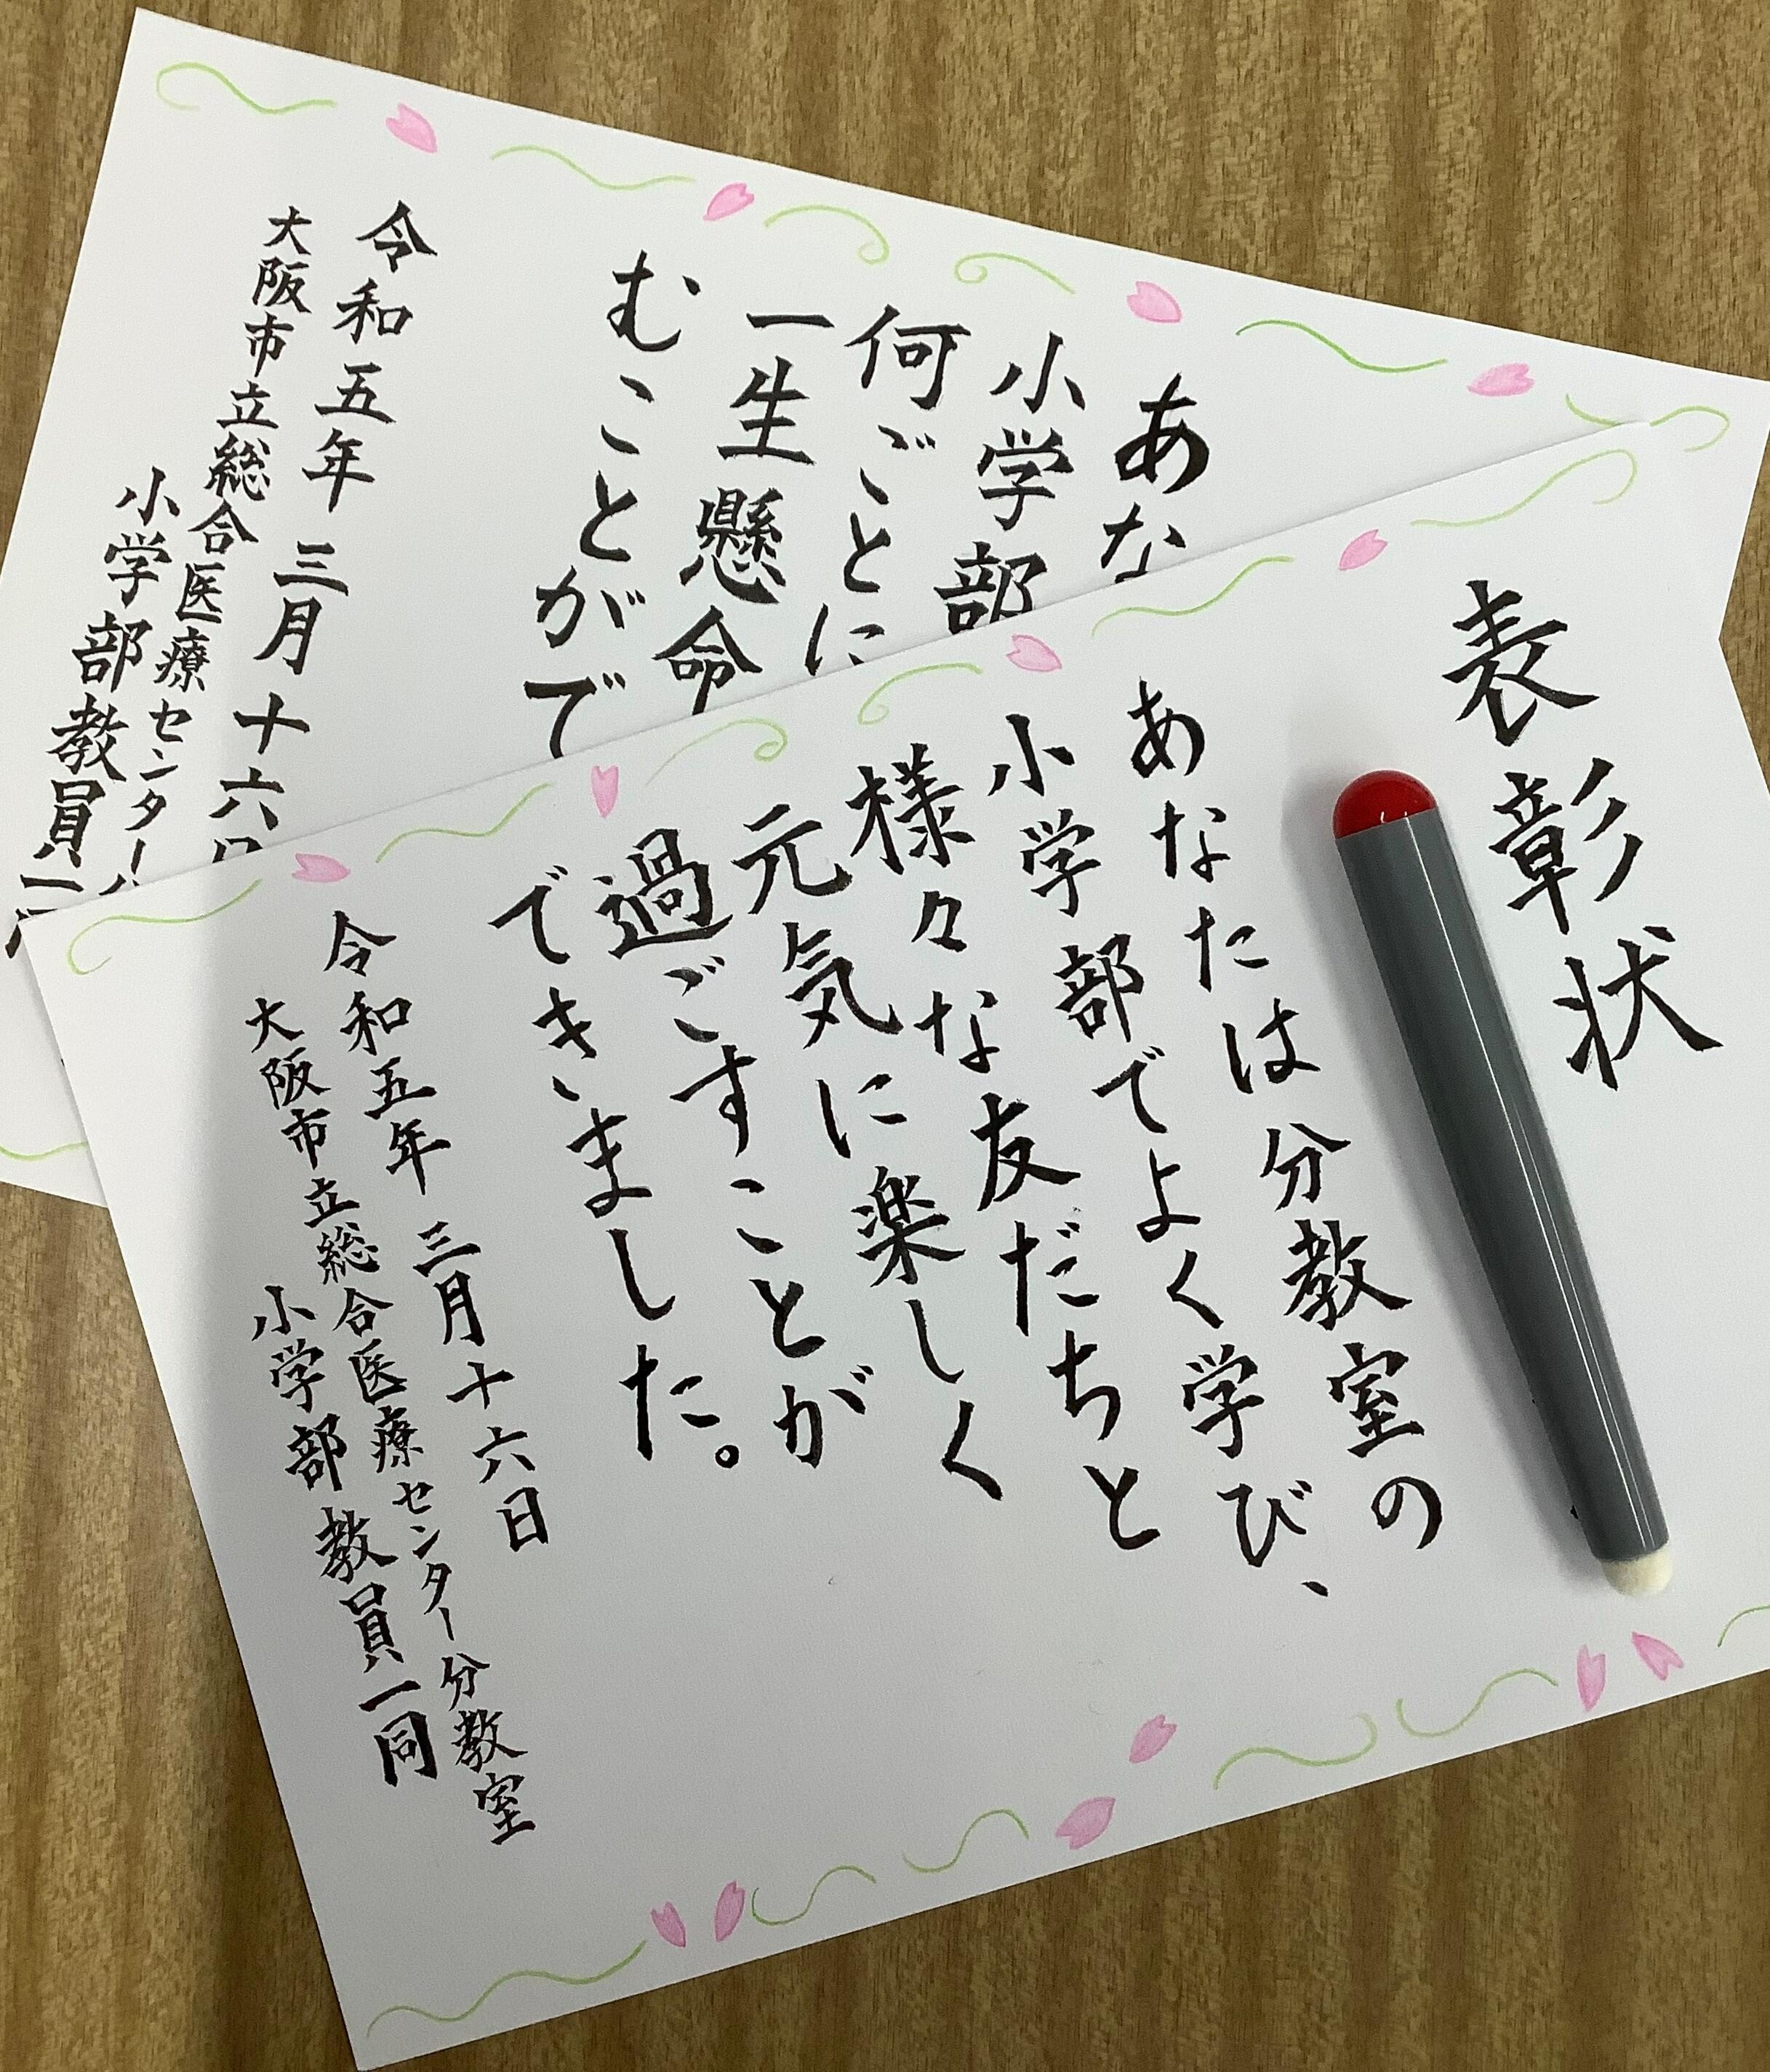 表彰状
あなたは分教室の
小学部でよく学び、
様々な友だちと
元気に楽しく
過ごすことが
できました。
令和五年 三月十六日
大阪市立総合医療センター分教室
小学部教員一同
あな
小学部
何ごとに
一生懸命
むことがで
令和五年 三月十六日
大阪市立総合医療センター
小学部教員一